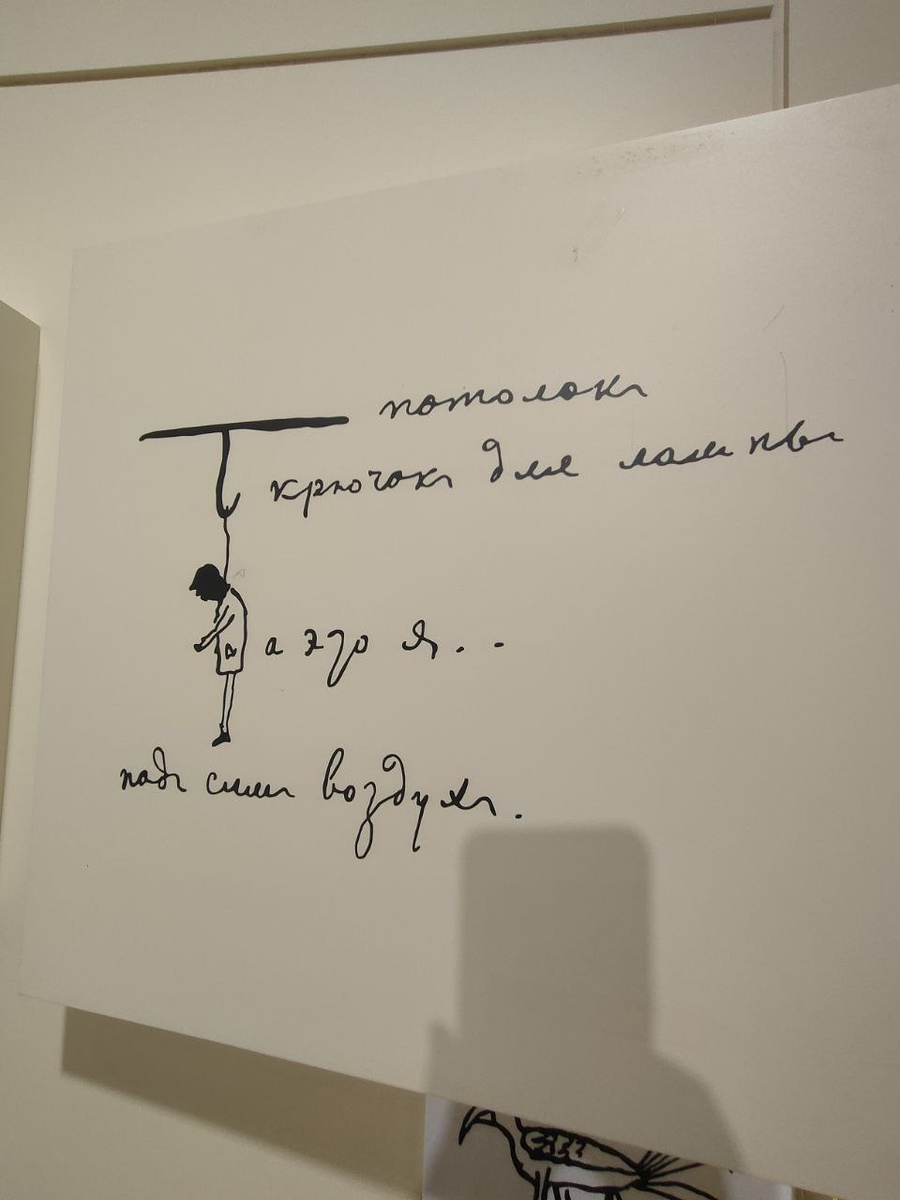 потолок
крючок для лампы
а это я..
под ним воздух.